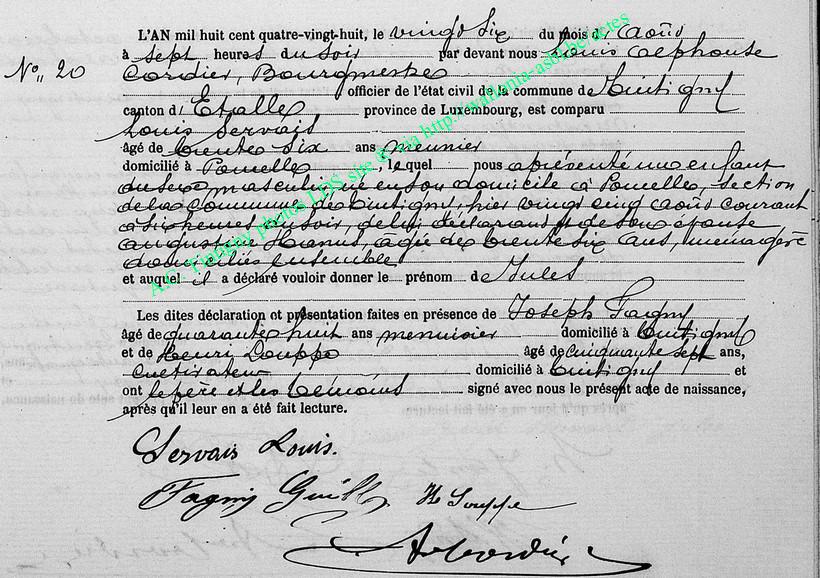 L'AN mil huit cent quatre-vingt-huit, le vingt Six du mois d'Août
à sept heures du Soir par devant nous Louis Alphonse
N° 20
Cordier, Bourgmestre
officier de l'état civil de la commune de Tintigny
canton d'Etalle province de Luxembourg, est comparu
Louis Servais
âgé de trente Six ans meunier
domicilié à Poncelle, lequel nous a présenté un enfant
du Sexe masculin, né en Son domicile à Poncelle, section
de la Commune de Tintigny, hier vingt cinq Août courant
à Six heures du Soir, de lui déclarant et de Son épouse
Augustine Hanus, agée de trente six ans, menagère
domiciliés ensemble
et auquel il a déclaré vouloir donner le prénom de Jules
Les dites déclaration et présentation faites en présence de Joseph Fagny
âgé de quarante huit ans menuisier domicilié à Tintigny
et de Henri Louppe âgé de cinquante sept ans,
Cultivateur domicilié à Tintigny et
ont le père et les témoins signé avec nous le présent acte de naissance,
après qu'il leur en a été fait lecture.
Servais Louis.
Fagny H Louppe
ACordier
A.G. Tintigny photos LDS, site via http://wallonia-asbl.be/actes